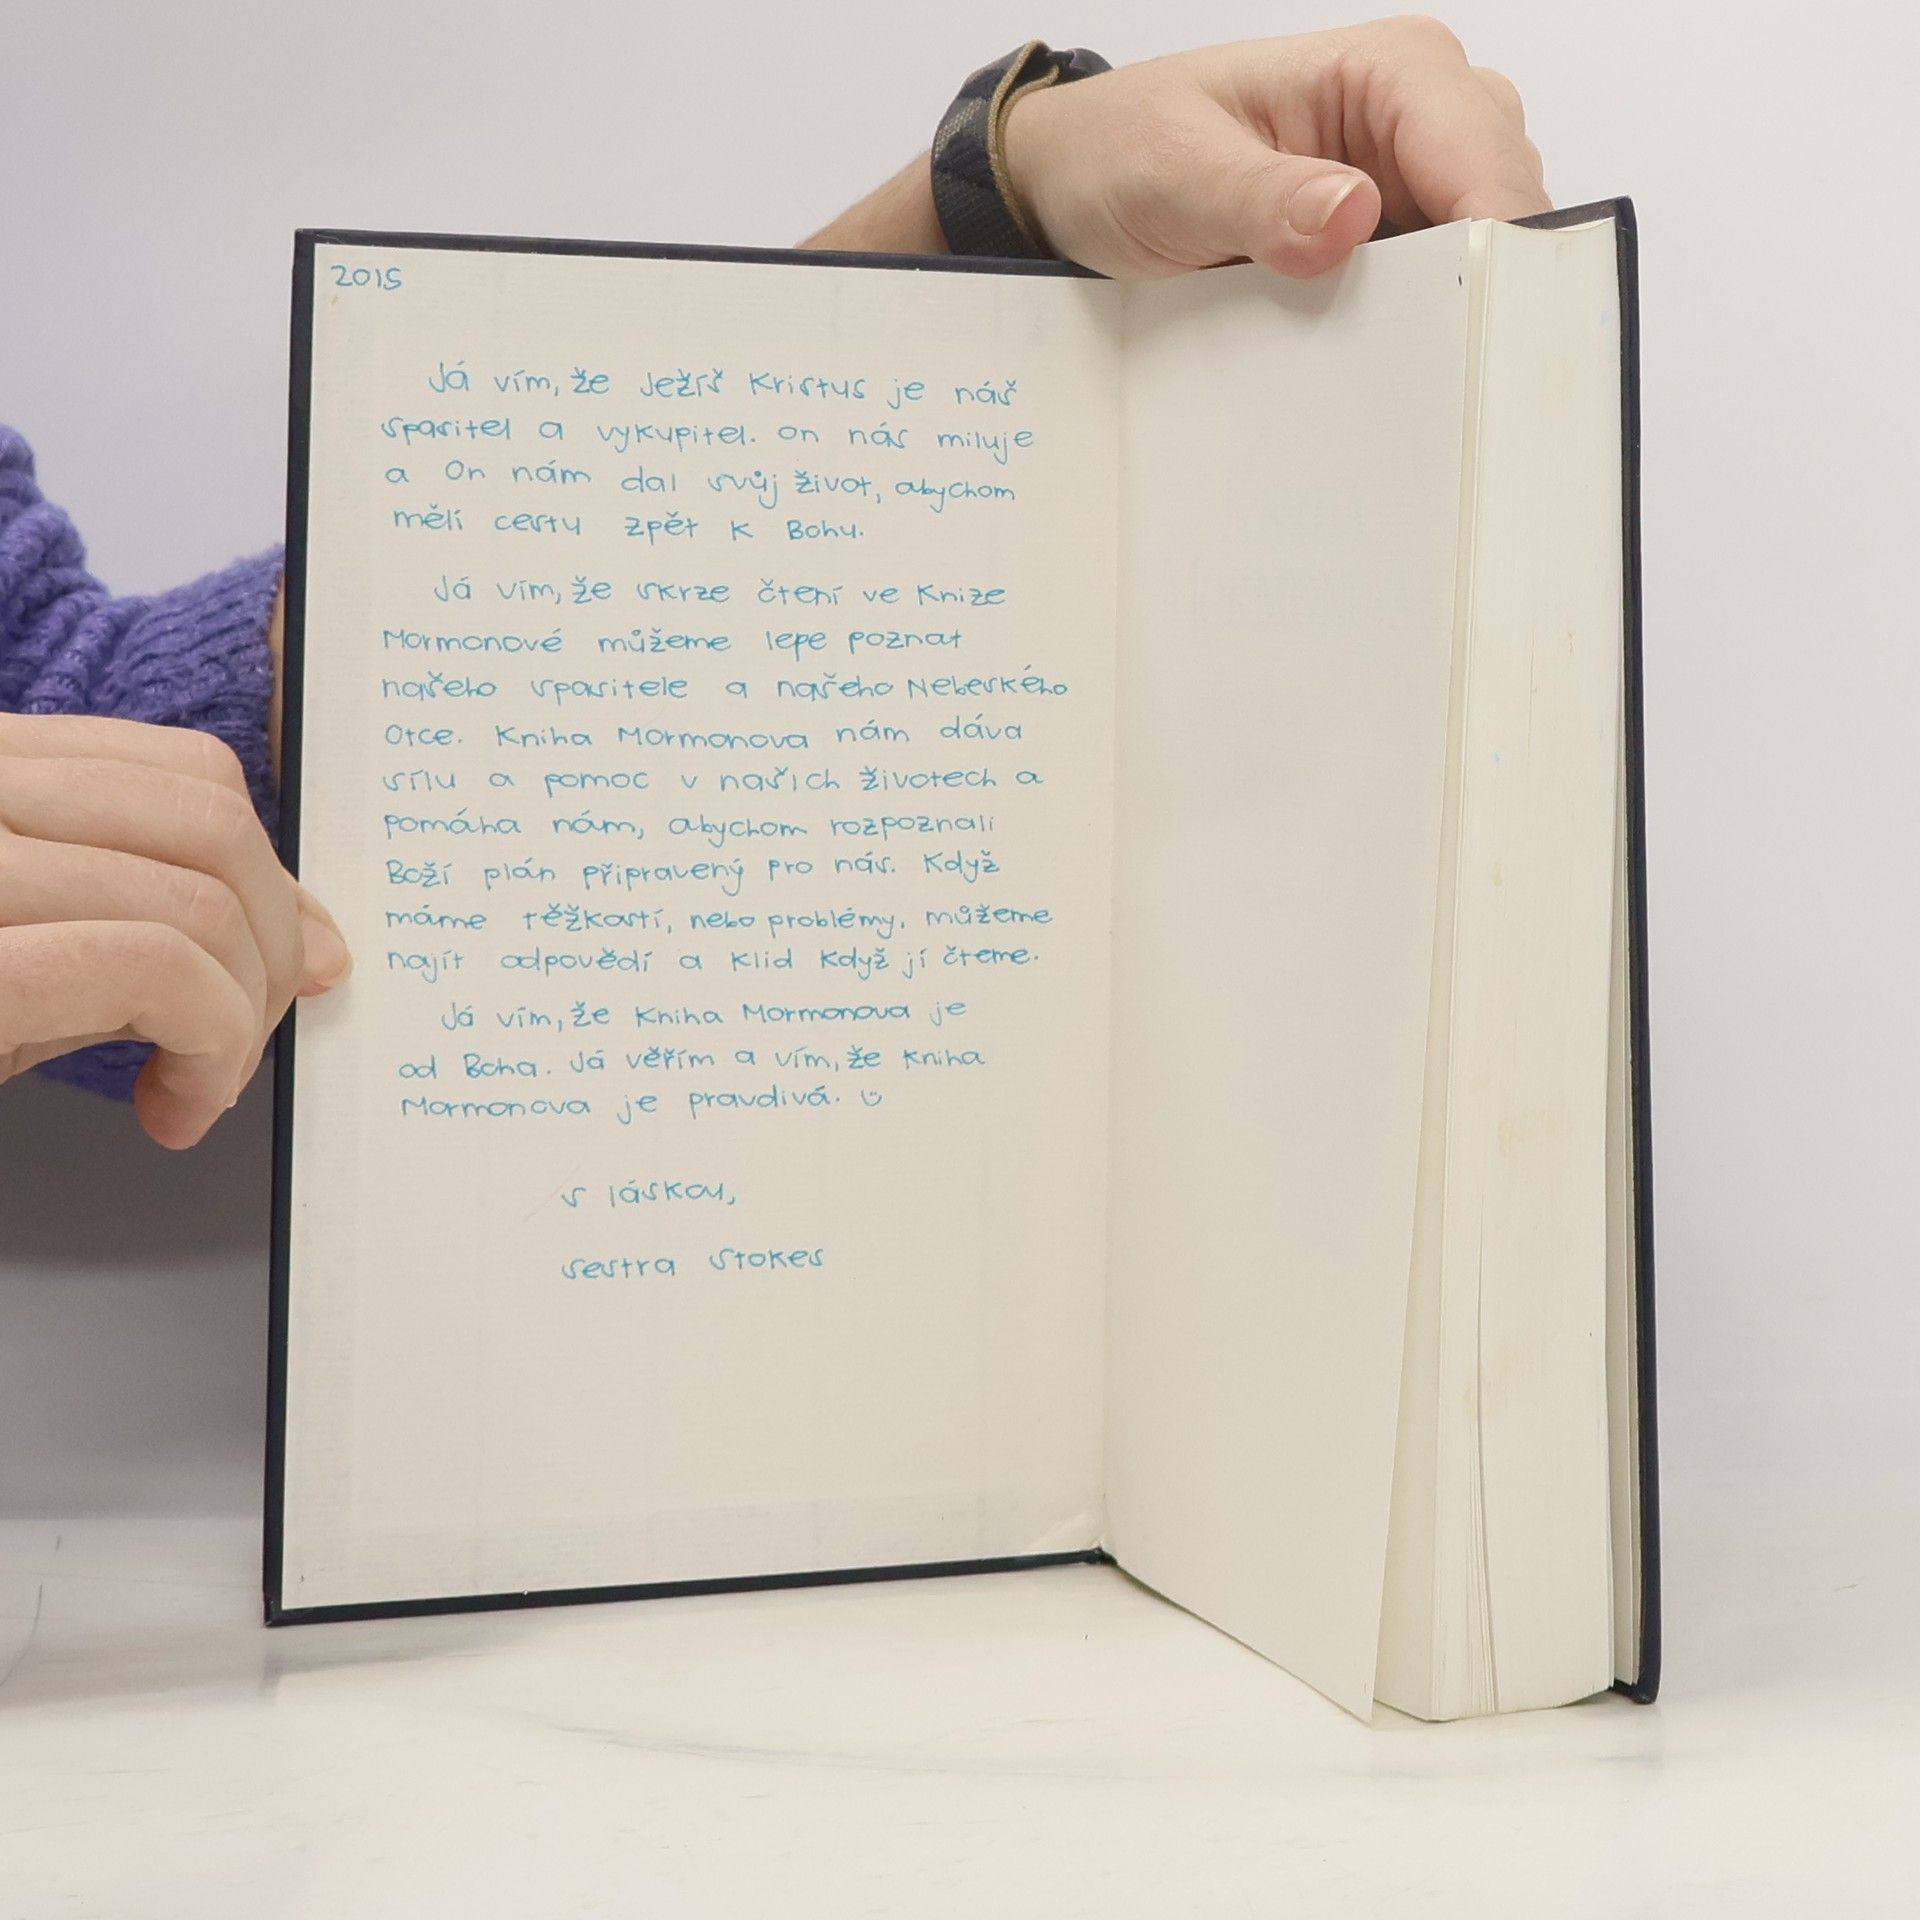 2015
Já vím, že Ježíš Kristus je náš
spasitel a vykupitel. On nás miluje
a On nám dal svůj život, abychom
mělí cestu zpět k Bohu.
Já vím, že skrze čtení ve Knize
Mormonové můžeme lepe poznat
našeho spasitele a našeho Nebeského
Otce. Kniha Mormonova nám dáva
sílu a pomoc v našich životech a
pomáha nám, abychom rozpoznali
Boží plán připravený pro nás. Když
máme těžkostí, nebo problémy, můžeme
najít odpovědí a klid když jí čteme.
Já vím, že Kniha Mormonova je
od Boha. Já věřím a vím, že Kniha
Mormonova je pravdivá. ☺
s láskou,
sestra Stokes